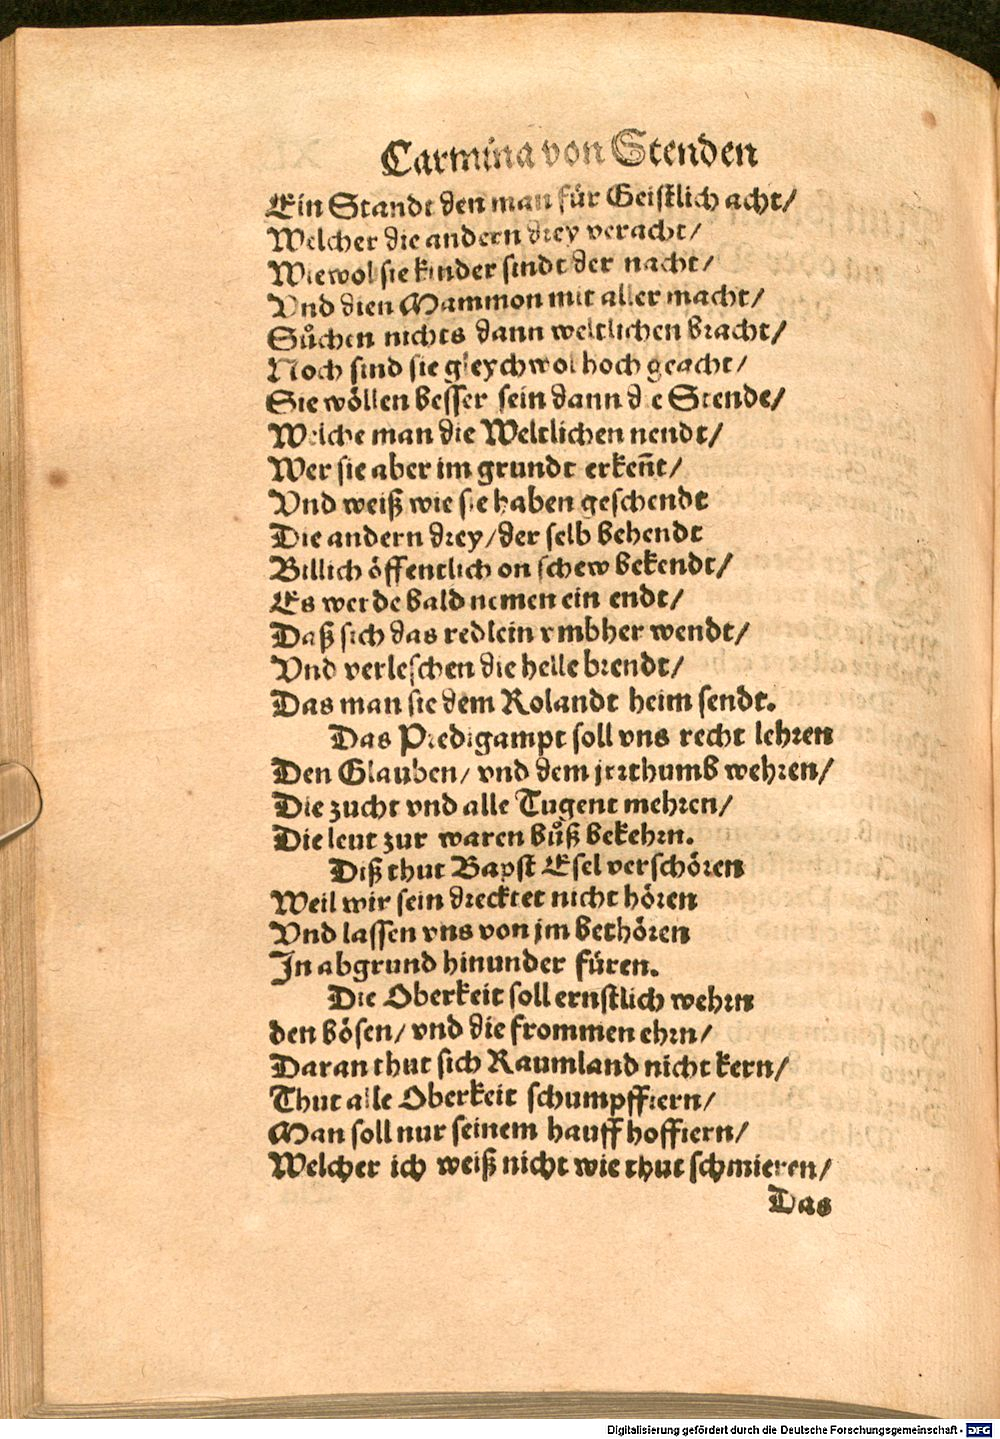 Carmina von Stenden
Ein Standt den man für Geistlich acht/
Welcher die andern drey veracht/
Wiewol sie kinder sindt der nacht/
Vnd dien Mammon mit aller macht/
Sůchen nichts dann weltlichen bracht/
Noch sind sie gleychwol hoch geacht/
Sie wöllen besser sein dann die Stende/
Welche man die Weltlichen nendt/
Wer sie aber im grundt erkeñt/
Vnd weiß wie sie haben geschendt
Die andern drey/der selb behendt
Billich öffentlich on schew bekendt/
Es werde bald nemen ein endt/
Daß sich das redlein vmbher wendt/
Vnd verleschen die helle brendt/
Das man sie dem Rolandt heim sendt.
Das Predigampt soll vns recht lehren
Den Glauben/ vnd dem jrrthumb wehren/
Die zucht vnd alle Tugent mehren/
Die leut zur waren bůß bekehrn.
Diß thut Bapst Esel verschören
Weil wir sein drecktet nicht hören
Vnd lassen vns von jm bethören
In abgrund hinunder füren.
Die Oberkeit soll ernstlich wehrn
den bösen/ vnd die frommen ehrn/
Daran thut sich Raumland nicht kern/
Thut alle Oberkeit schumpffiern/
Man soll nur seinem hauff hoffiern/
Welcher ich weiß nicht wie thut schmieren/
Das
Digitalisierung gefördert durch die Deutsche Forschungsgemeinschaft - DFG